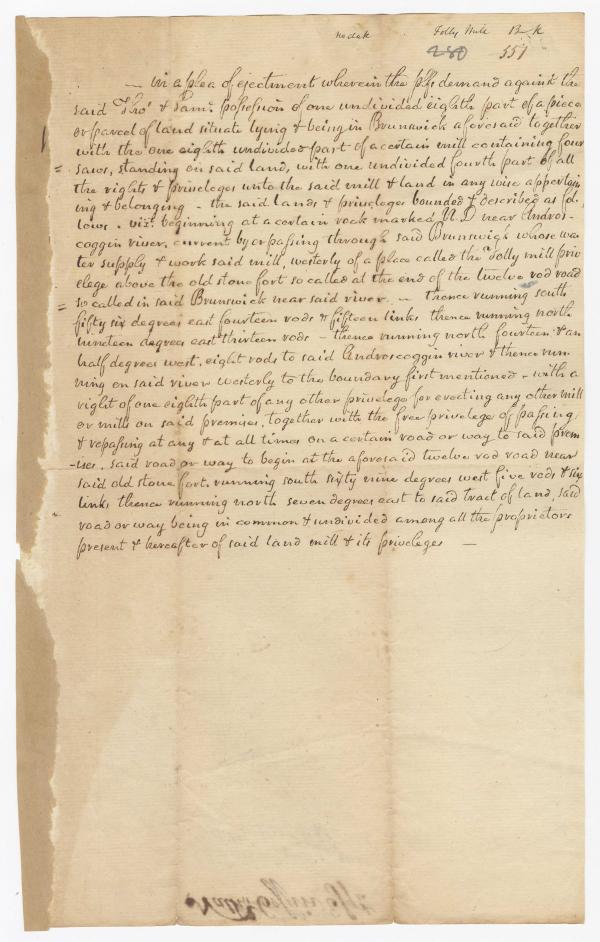 no date Folly Mill B-k
280 551
— in a plea of ejectment wherein the plfs demand against the
said Thos & Saml. possession of one undivided eighth part of a piece
or parcel of land situate lying & being in Brunswick aforesaid together
with the one eighth undivided part of a certain mill containing four
saws, standing on said land, with one undivided fourth part of all
the rights & priveleges unto the said mill & land in any wise appertain
ing & belonging - the said lands & priveleges bounded & described as fol
lows. vizt. beginning at a certain rock marked N.D near Andros-
coggin river, current by or passing through said Brunswick whose wa-
ter supply & work said mill, westerly of a place called the Folly mill priv
elege above the old stone fort so called at the end of the twelve rod road
so called in said Brunswick near said river. — thence running south
fifty six degrees east fourteen rods & fifteen links thence running north
nineteen degrees east thirteen rods - thence running north fourteen & an
half degrees west, eight rods to said Androscoggin river & thence run-
ning on said river westerly to the boundary first mentioned - with a
right of one eighth part of any other privelege for erecting any other mill
or mill on said premises, together with the free privelege of passing
& repassing at any & at all times on a certain road or way to said prem
-ises. said road or way to begin at the aforesaid twelve rod road near
said old stone fort. running south sixty nine degrees west five rods & six
links thence running north seven degrees east to said tract of land, said
road or way being in common & undivided among all the proprietors
present & hereafter of said land mill & its priveleges —